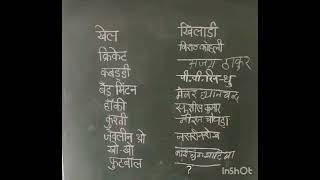 खेल खिलाडी
क्रिकेट विराट कोहली
कबड्डी अजय ठाकुर
बैडमिंटन पी.वी. सिन्धु
हॉकी मेजर ध्यानचन्द
कुश्ती सुशील कुमार
जेवलीन थ्रो नीरज चोपड़ा
खो खो
फुटबॉल
?
InShOt